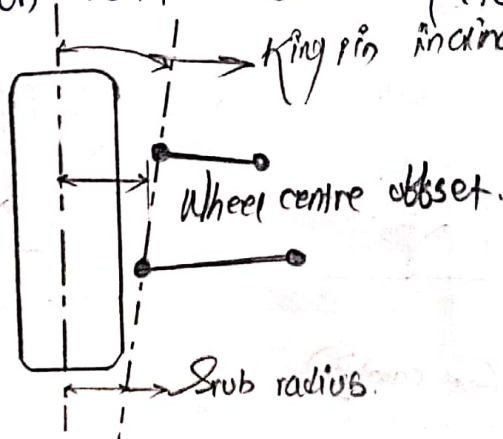 King pin
Wheel centre offset.
Srub radius.